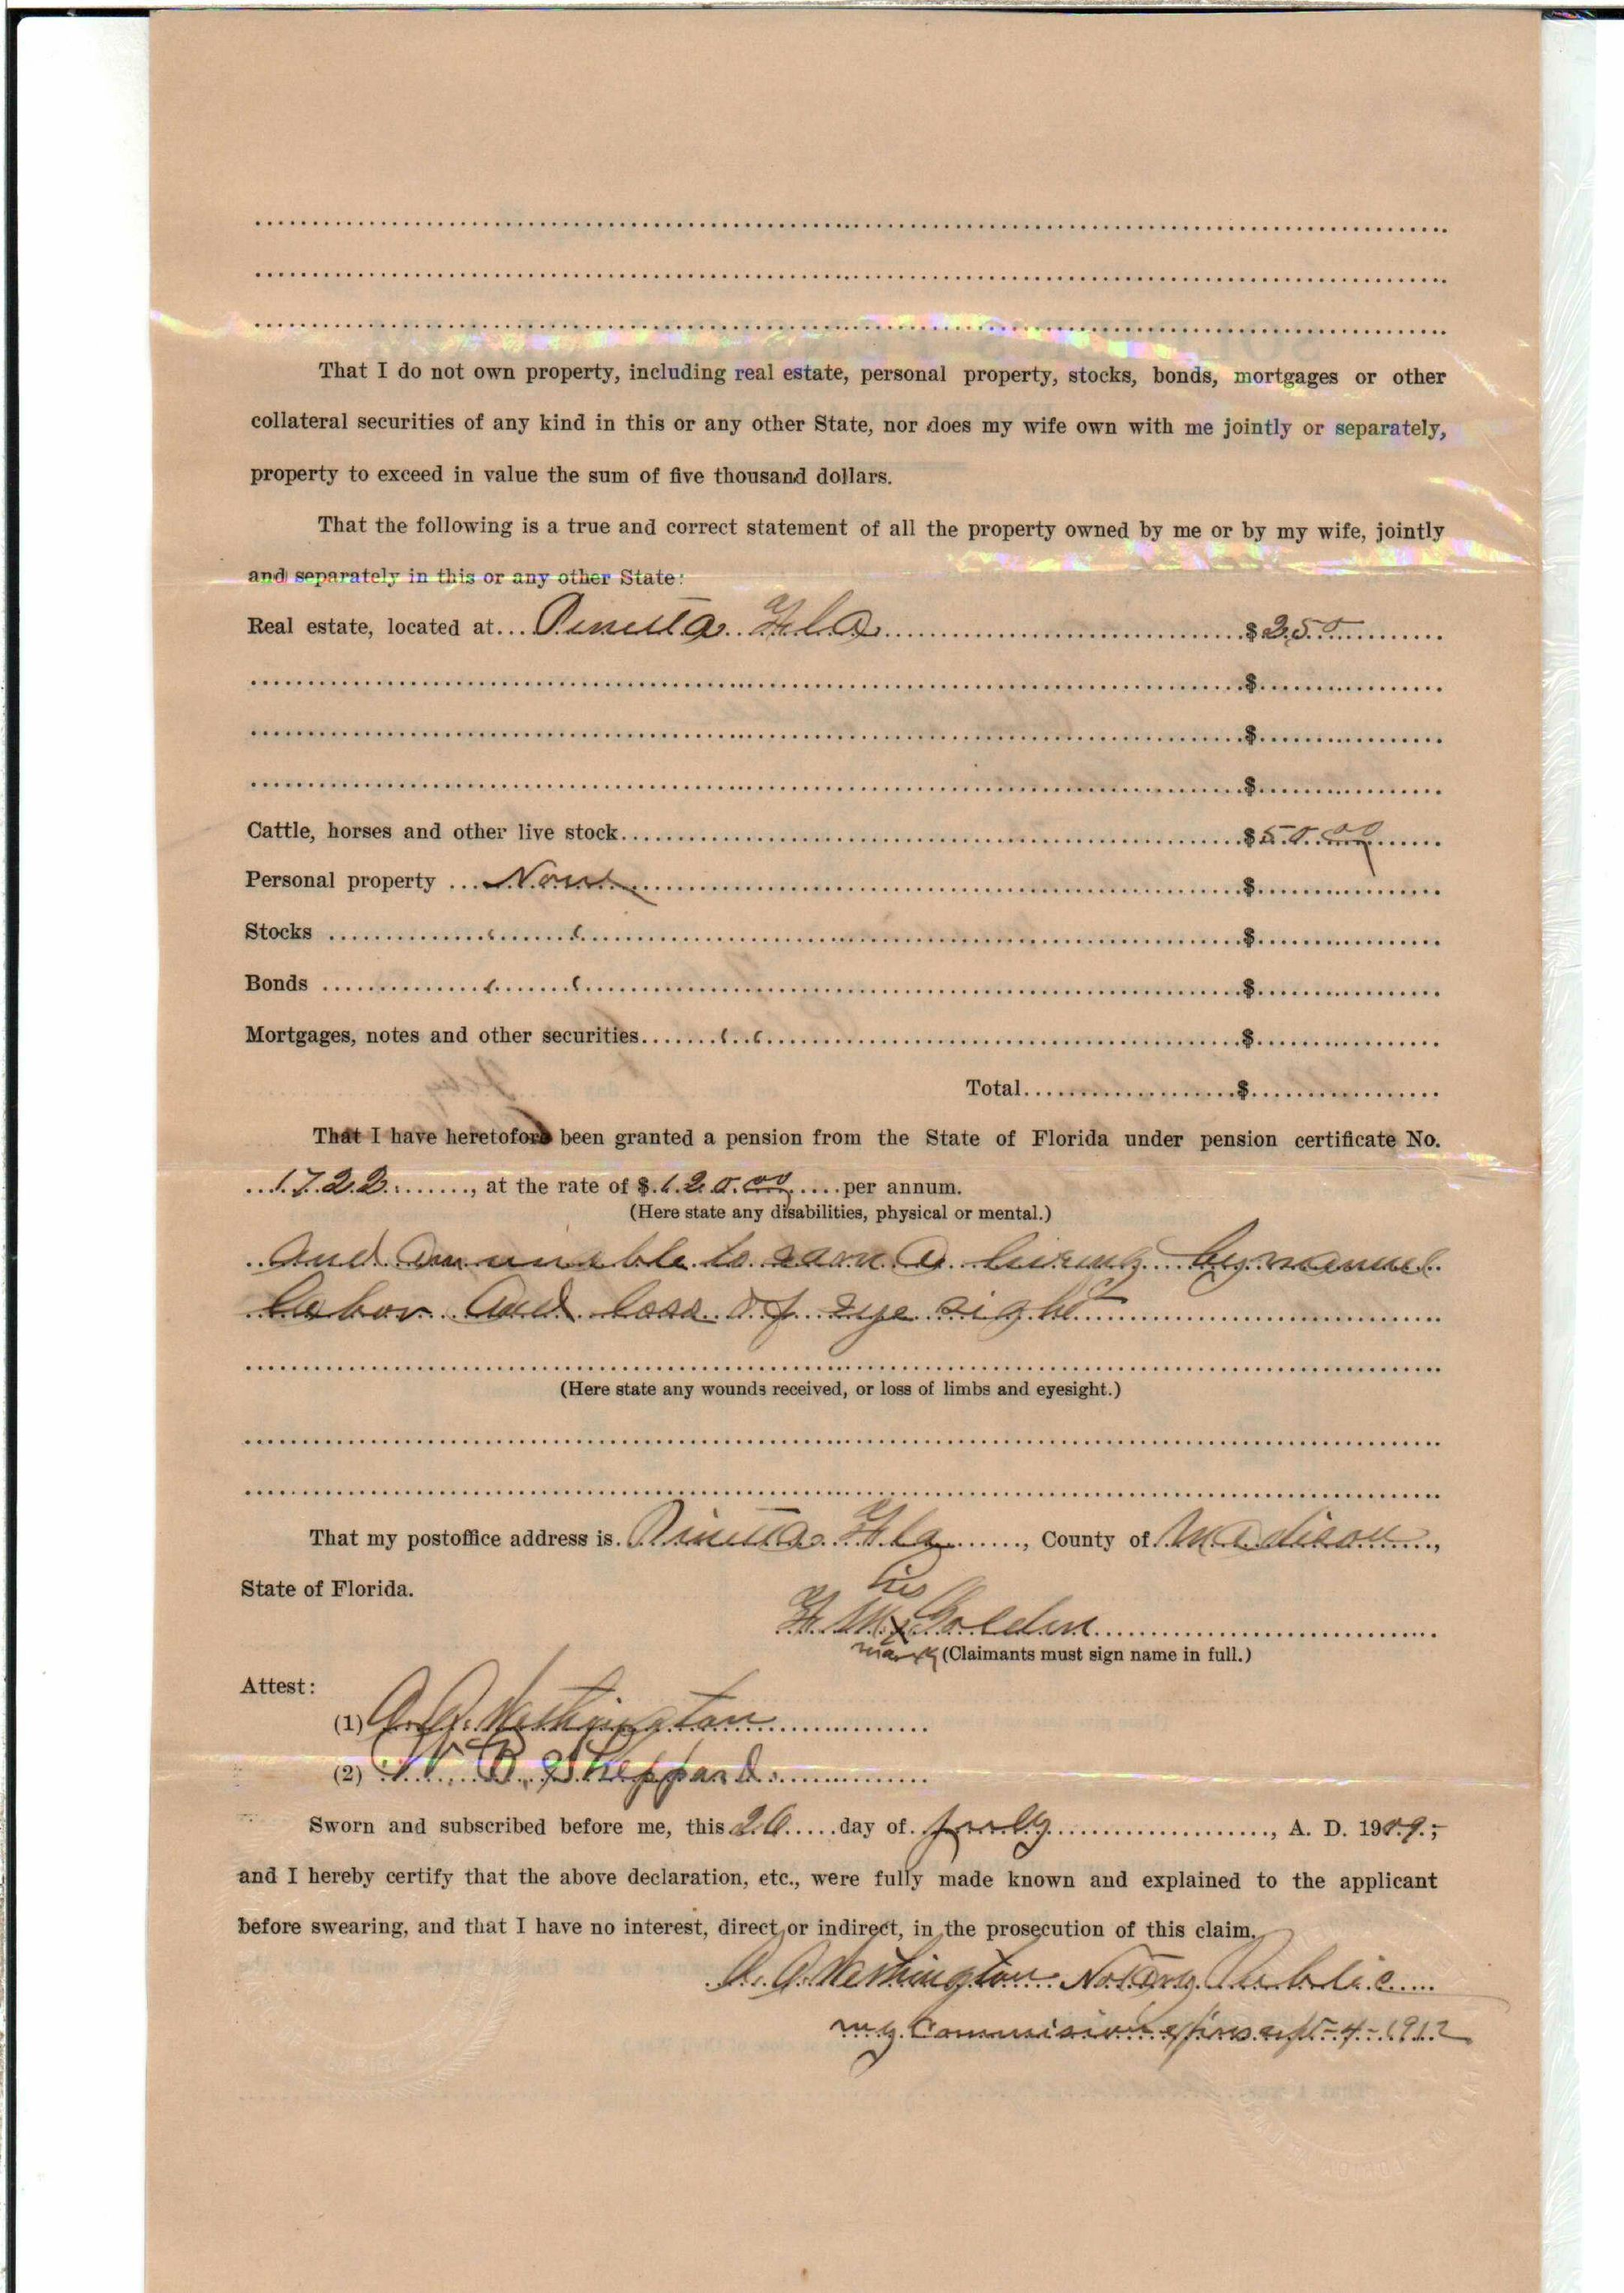 That I do not own property, including real estate, personal property, stocks, bonds, mortgages or other
collateral securities of any kind in this or any other State, nor does my wife own with me jointly or separately,
property to exceed in value the sum of five thousand dollars.
That the following is a true and correct statement of all the property owned by me or by my wife, jointly
and separately in this or any other State:
Real estate, located at... Pinetta Fla $ 250
$
$
$
Cattle, horses and other live stock $ 50.00
Personal property ... None $
Stocks " $
Bonds " $
Mortgages, notes and other securities " $
Total $
That I have heretofore been granted a pension from the State of Florida under pension certificate No.
1722, at the rate of $ 120.00 per annum.
(Here state any disabilities, physical or mental.)
and am unable to earn a living by manuel
labor and loss of eye sight
(Here state any wounds received, or loss of limbs and eyesight.)
That my postoffice address is Pinetta Fla, County of Madison,
State of Florida.
his
F. M. x Golden
mark (Claimants must sign name in full.)
Attest:
(1) A. A. Wethington
(2) W. B. Sheppard
Sworn and subscribed before me, this 26 day of July, A. D. 1909;
and I hereby certify that the above declaration, etc., were fully made known and explained to the applicant
before swearing, and that I have no interest, direct or indirect, in the prosecution of this claim.
A. A. Wethington Notary Public
my Commision expires sept-4-1912